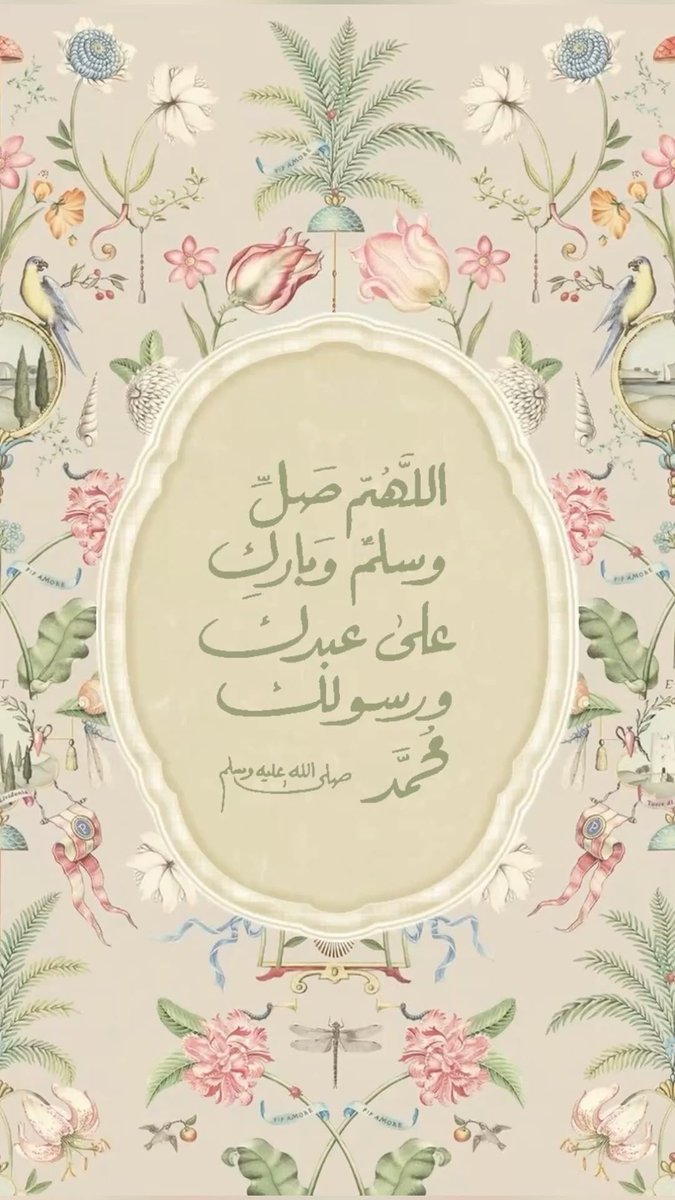 PIP AMORE
اللَّهُمّ صَلِّ
وسلمّ وَبارك
على عبدك
ورسولك
مُحمَّد صلى الله عليه وسلم
PIP AMORE
PIP AMORE
PIP AMORE
PIP AMORE